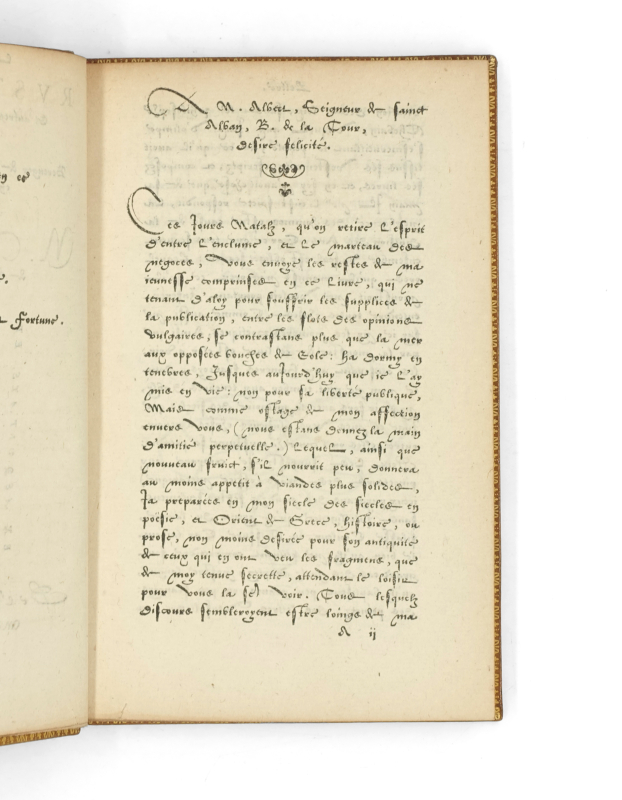 A M. Albert, Seigneur de sainct
Alban, B. de la Tour,
desire felicité.
Ces Jours Natalz, qu'on retire l'esprit
d'entre l'enclume, et le marteau des
negoces, vous envoye les restes de ma
ieunesse comprinses en ce Livre, qui ne
tenant d'aloy pour souffrir les supplices de
la publication, entre les flots des opinions
vulgaires, se contrastans plus que la mer
aux opposées bouches de Eole: ha dormy en
tenebres, Jusques aujourd'huy que ie l'ay
mis en vie: non pour sa liberté publique,
Mais comme ostage de mon affection
envers vous, (nous estans donnez la main
d'amitié perpetuelle.) Lequel, ainsi que
nouveau fruict, s'il nourrit peu, donnera
au moins appetit à viandes plus solides,
Ja preparées en mon siecle des siecles en
poësie, et Orient de Grece, histoire, ou
prose, non moins desirée pour son antiquité
de ceux qui en ont veu les fragmens, que
de moy tenue secrette, attendant le loisir
pour vous la fe voir. Tous lesquelz
discours sembleroyent estre loings de ma
A ij
en ce
fortune.